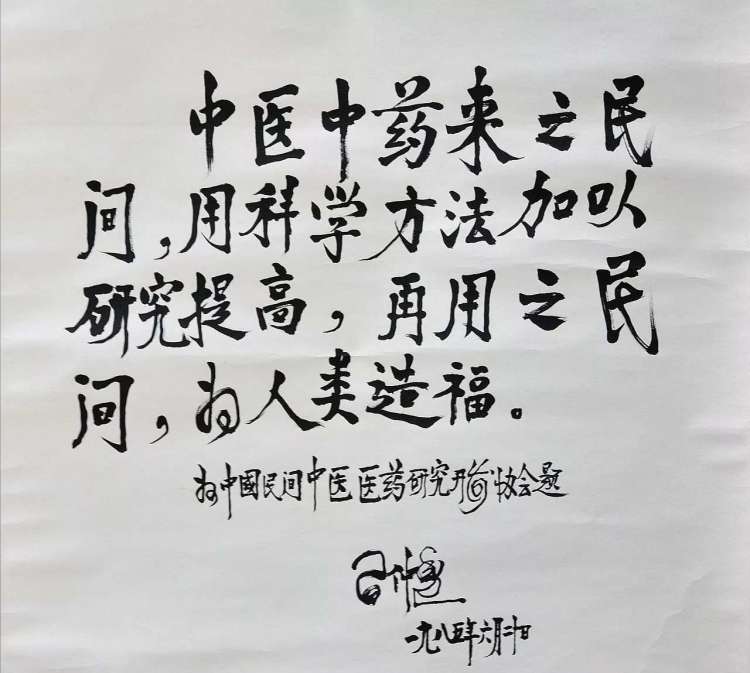 中医中药来之民
间，用科学方法加以
研究提高，再用之民
间，为人类造福。
为中國民间中医医药研究开发协会题
一九八五年六月二十日